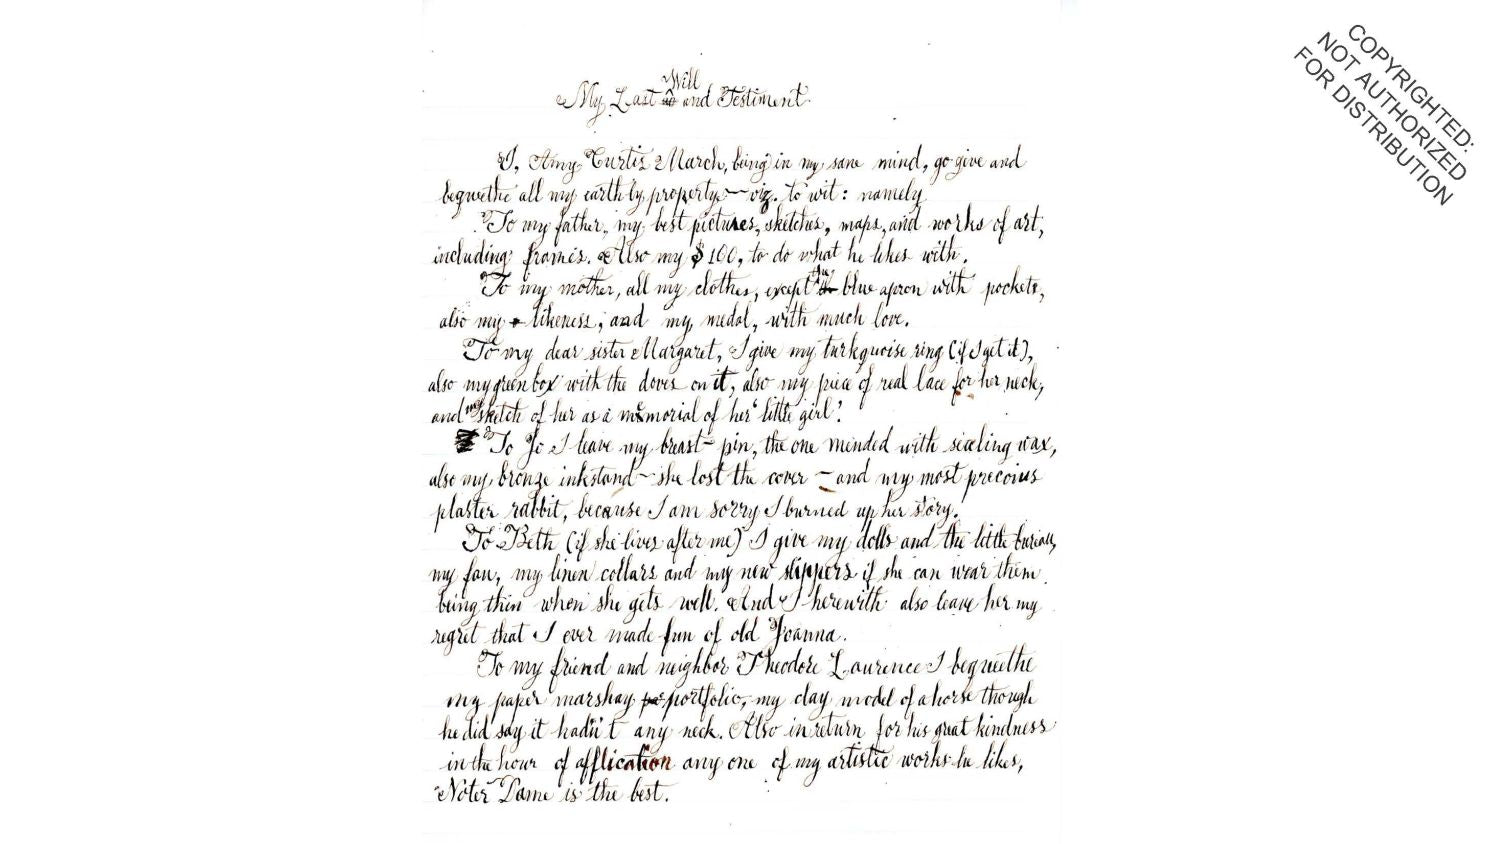 My Last Will and Testiment.
COPYRIGHTED:
NOT AUTHORIZED
FOR DISTRIBUTION
I, Amy Curtis March, being in my sane mind, go give and
bequethe all my earthly property—viz. to wit: namely
To my father, my best pictures, sketches, maps, and works of art,
including frames. Also my $100, to do what he likes with.
To my mother, all my clothes, except the blue apron with pockets,
also my likeness, and my medal, with much love.
To my dear sister Margaret, I give my turkquoise ring (if I get it),
also my green box with the doves on it, also my piece of real lace for her neck,
and my sketch of her as a memorial of her 'little girl'.
To Jo I leave my breast-pin, the one mended with sealing wax,
also my bronze inkstand—she lost the cover—and my most precoius
plaster rabbit, because I am sorry I burned up her story.
To Beth (if she lives after me) I give my dolls and the little bureau,
my fan, my linen collars and my new slippers if she can wear them
being thin when she gets well. And I herewith also leave her my
regret that I ever made fun of old Joanna.
To my friend and neighbor Theodore Laurence I bequeethe
my paper marshay portfolio, my clay model of a horse though
he did say it hadn't any neck. Also in return for his great kindness
in the hour of afflication any one of my artistic works he likes,
Noter Dame is the best.